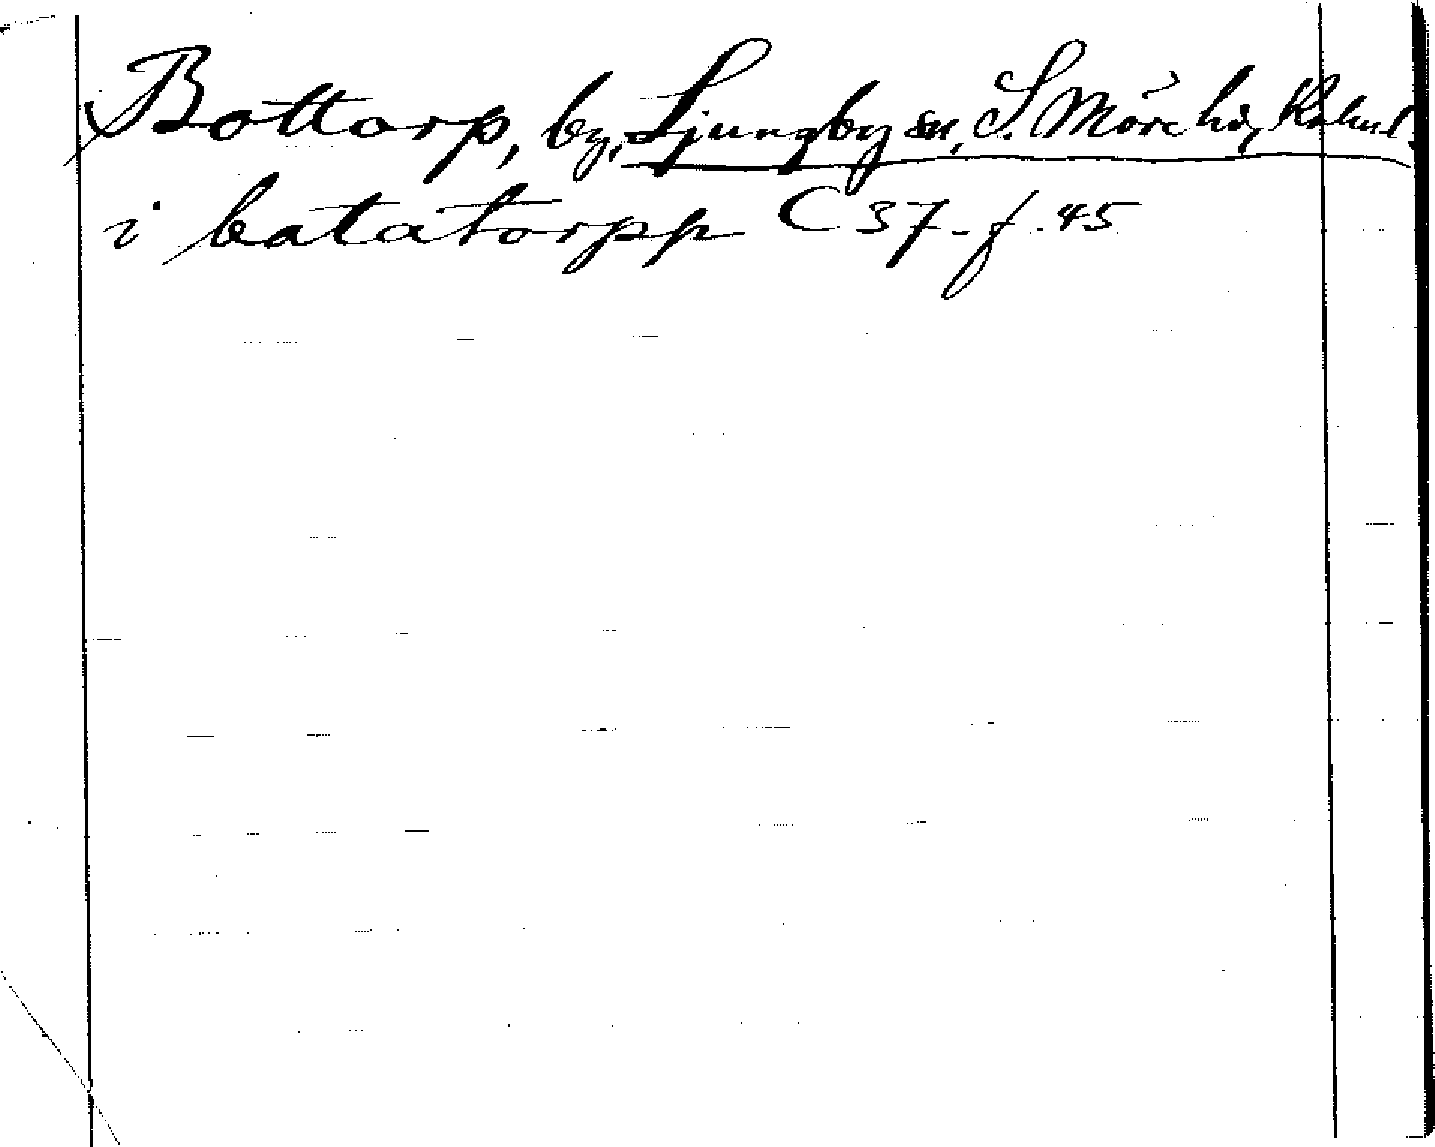 Bottorp, by, Ljungby sn, S. Möre hd, Kalm l.
i batatorpp C 37. f. 45